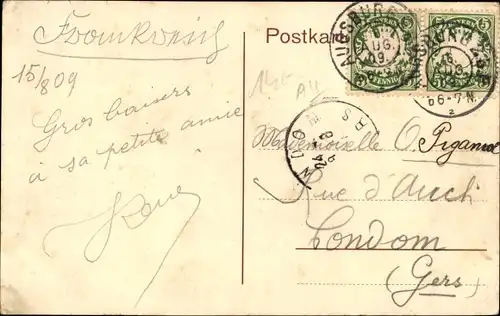 Frankreich
Postkarte
15/8 09
Gros baisers
à sa petite amie
AUGSBURG
BAYERN
5 PFENNIG
AUG.
09.
6-7 N.
CONDOM
GERS
Mademoiselle O. Piganiol
Rue d'Auch
Condom
(Gers)